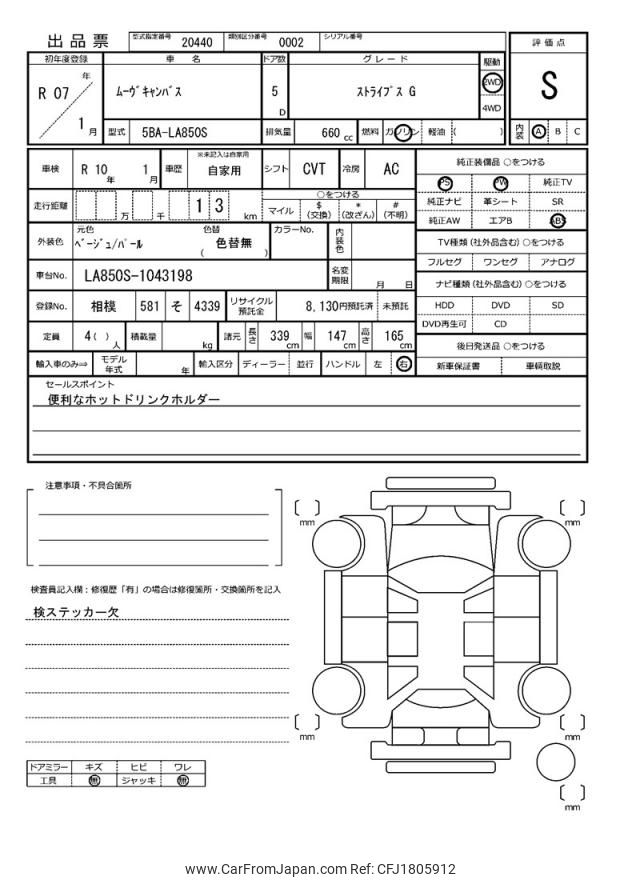 出品票 型式指定番号 20440 類別区分番号 0002 シリアル番号
評価点
S
内装 A B C
初年度登録 車名 ドア数 グレード 駆動
R 07 年 1 月
ムーヴキャンバス 5 D ストライプス G 2WD
4WD
型式 5BA-LA850S 排気量 660 cc 燃料 ガソリン 軽油 ( )
車検 R 10 年 1 月 車歴 ※未記入は自家用 自家用 シフト CVT 冷房 AC
走行距離 万 千 1 3 km ○をつける
マイル $ (交換) * (改ざん) # (不明)
外装色 元色 ベージュ/パール 色替 色替無 ( ) カラーNo. 内装色
車台No. LA850S-1043198 名変期限 月 日
登録No. 相模 581 そ 4339 リサイクル預託金 8,130円預託済 未預託
定員 4( )人 積載量 kg 諸元 長さ 339 cm 幅 147 cm 高さ 165 cm
輸入車のみ⇒ モデル年式 年 輸入区分 ディーラー 並行 ハンドル 左 右
純正装備品 ○をつける
PS PW 純正TV
純正ナビ 革シート SR
純正AW エアB ABS
TV種類 (社外品含む) ○をつける
フルセグ ワンセグ アナログ
ナビ種類 (社外品含む) ○をつける
HDD DVD SD
DVD再生可 CD
後日発送品 ○をつける
新車保証書 車輌取説
セールスポイント
便利なホットドリンクホルダー
注意事項・不具合箇所
検査員記入欄：修復歴「有」の場合は修復箇所・交換箇所を記入
検ステッカー欠
ドアミラー キズ ヒビ ワレ
工具 無 ジャッキ 無
mm
mm
mm
mm
mm
www.CarFromJapan.com Ref: CFJ1805912